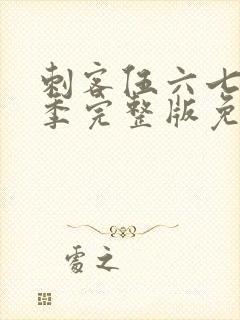 刺客伍六七
季完整版免
霭之